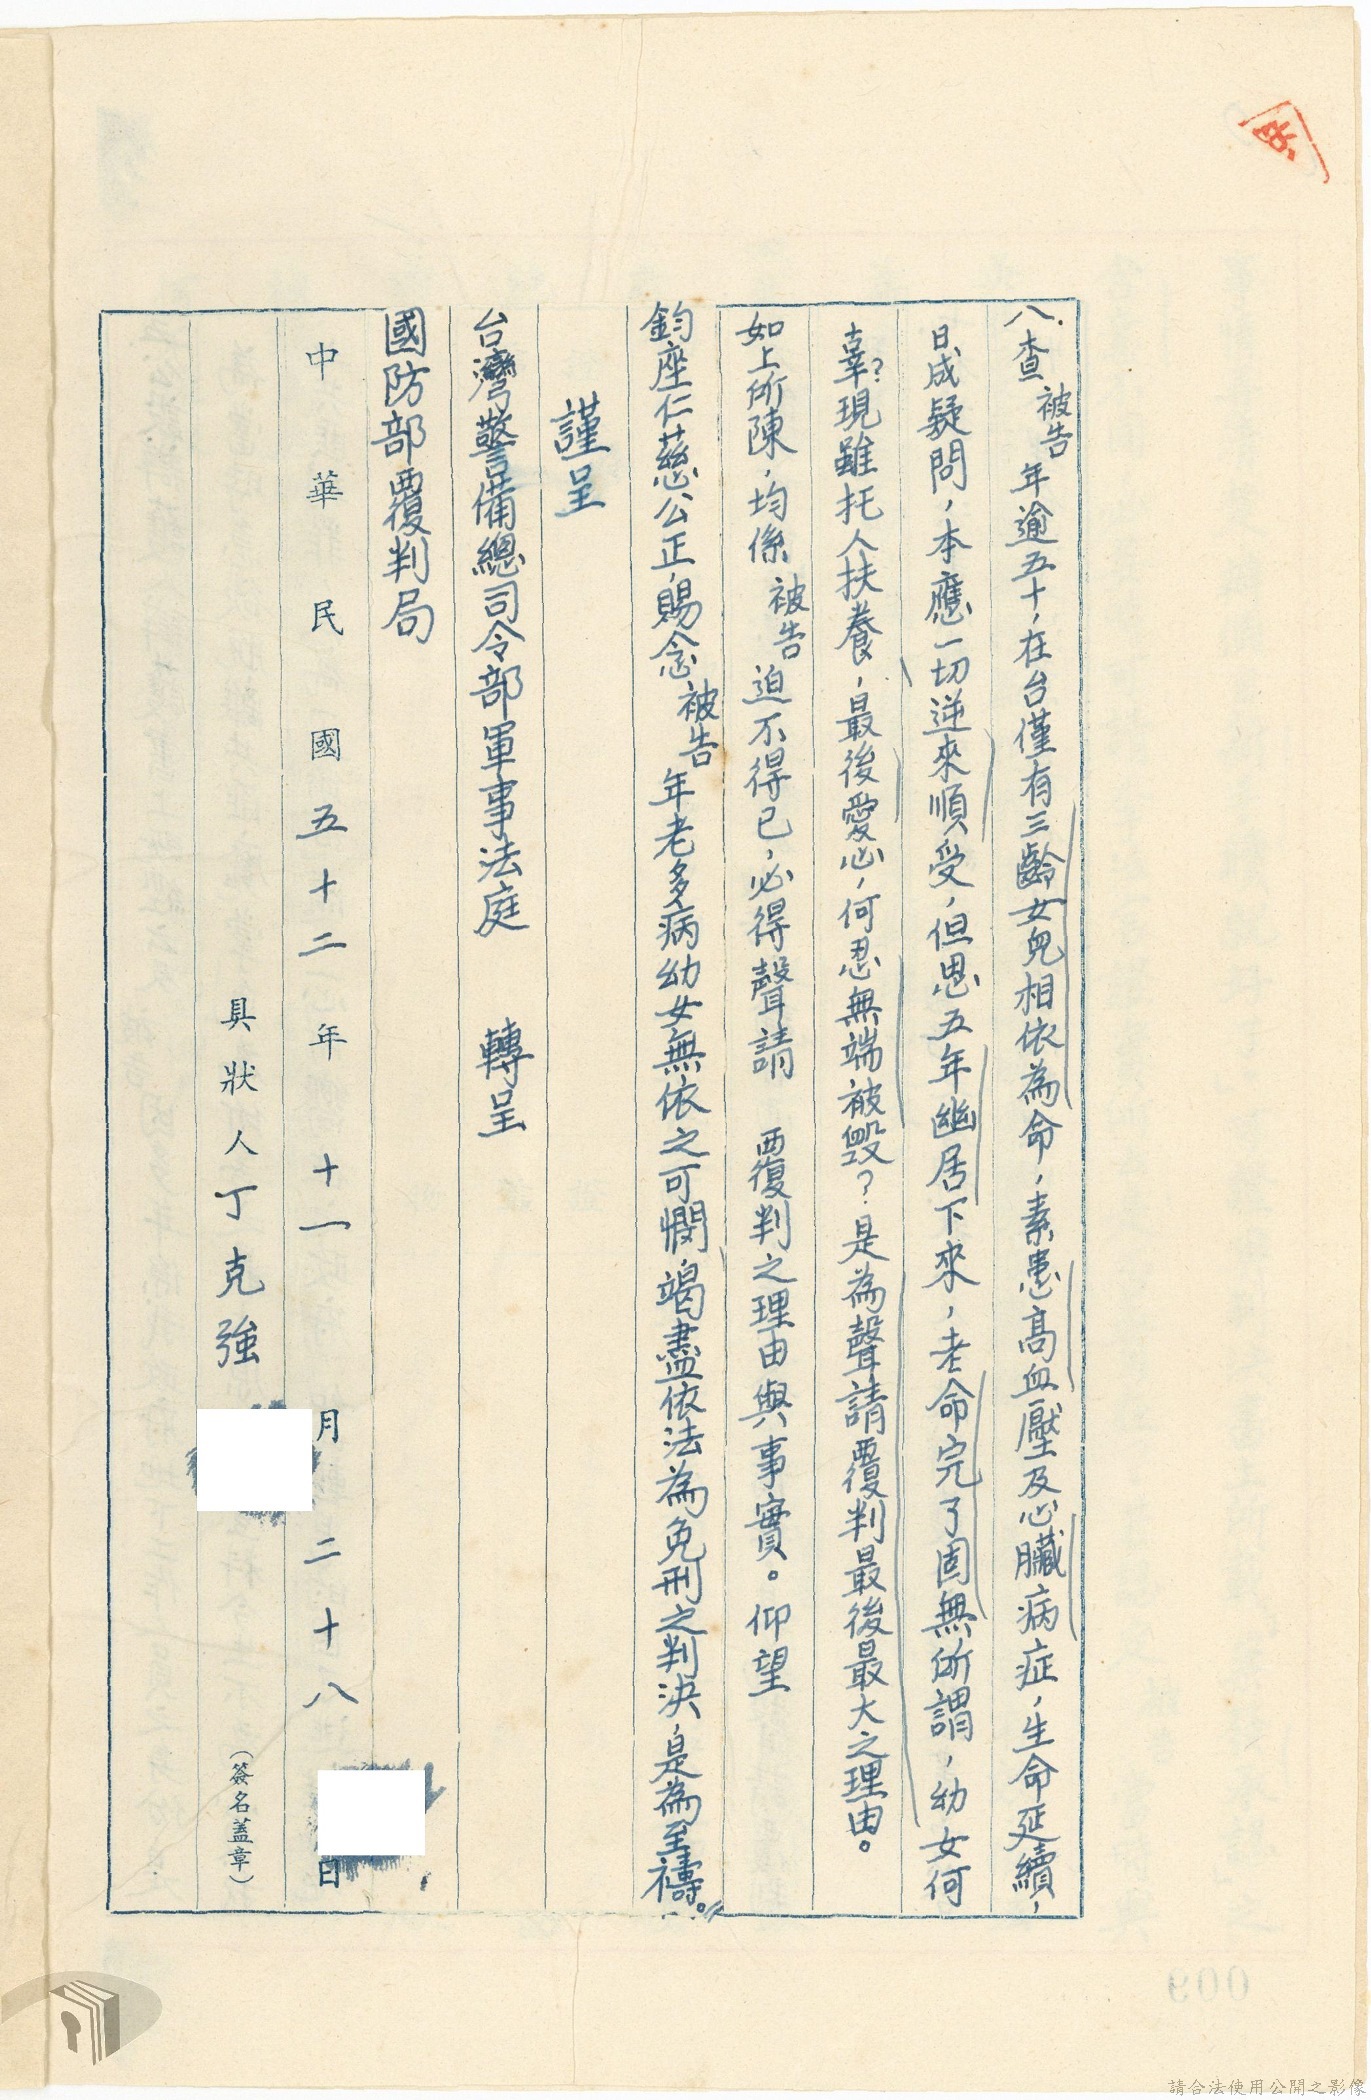 八.查被告年逾五十,在台僅有三齡女兒相依為命,素患高血壓及心臟病症,生命延續,
日成疑問,本應一切逆來順受,但思五年幽居下來,老命完了固無所謂,幼女何
辜?現雖托人扶養,最後愛心,何忍無端被毀?是為聲請覆判最後最大之理由。
如上所陳,均係被告迫不得已,必得聲請 覆判之理由與事實。仰望
鈞座仁慈公正,賜念被告年老多病幼女無依之可憫,竭盡依法為免刑之判決,是為至禱。
謹呈
台灣警備總司令部軍事法庭 轉呈
國防部覆判局
中華民國五十二年十一月二十八日
具狀人丁克強 (簽名蓋章)
009
請合法使用公開之影像